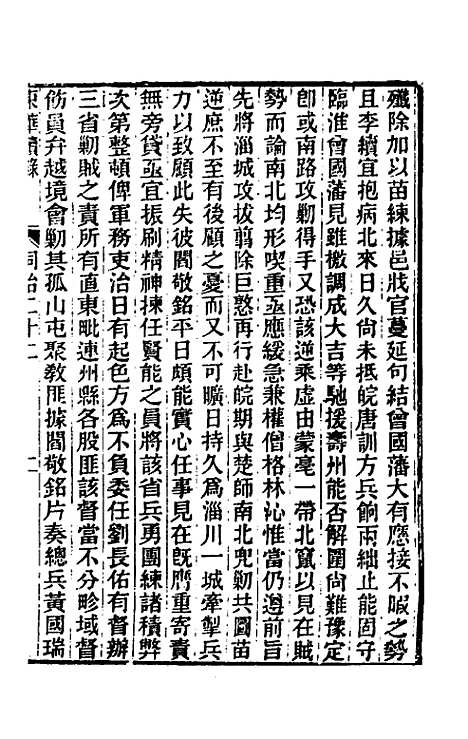 殲除加以苗練據邑戕官蔓延句結曾國藩大有應接不暇之勢
且李續宜抱病北來日久尙未抵皖唐訓方兵餉兩絀止能固守
臨淮曾國藩見雖檄調成大吉等馳援壽州能否解圍尙難豫定
卽或南路攻勦得手又恐該逆乘虛由蒙亳一帶北竄以見在賊
勢而論南北均形喫重亟應緩急兼權僧格林沁惟當仍遵前旨
先將淄城攻拔翦除巨憝再行赴皖期與楚師南北兜勦共圖苗
逆庶不至有後顧之憂而又不可曠日持久爲淄川一城牽掣兵
力以致顧此失彼閻敬銘平日頗能實心任事見在旣膺重寄責
無旁貸亟宜振刷精神揀任賢能之員將該省兵勇團練諸積弊
次第整頓俾軍務吏治日有起色方爲不負委任劉長佑有督辦
三省勦賊之責所有直東毗連州縣各股匪該督當不分畛域督
飭員弁越境會勦其孤山屯聚教匪據閻敬銘片奏總兵黃國瑞
東華續錄
同治二十二